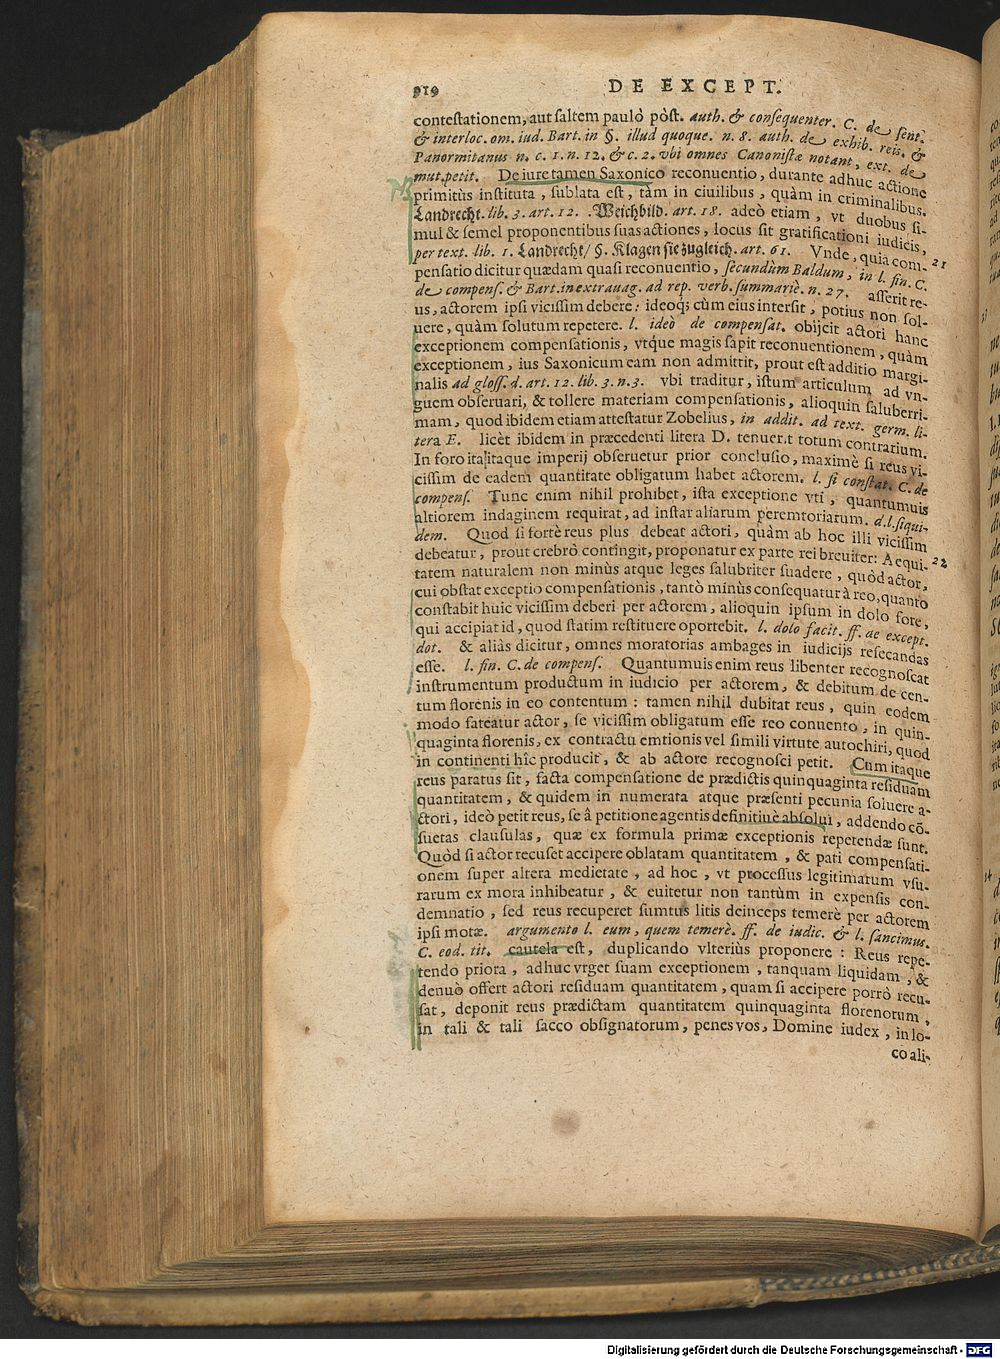 919 DE EXCEPT.
contestationem, aut saltem paulò pòst. auth. & consequenter. C. de sent.
& interloc. om. iud. Bart. in §. illud quoque. n. 8. auth. de exhib. reis. &
Panormitanus n. c. 1. n. 12. & c. 2. vbi omnes Canonistæ notant, ext. de
mut. petit. De iure tamen Saxonico reconuentio, durante adhuc actione
primitùs instituta, sublata est, tàm in ciuilibus, quàm in criminalibus.
Landrecht. lib. 3. art. 12. Weichbild. art. 18. adeò etiam, vt duobus si-
mul & semel proponentibus suas actiones, locus sit gratificationi iudicis,
per text. lib. 1. Landrecht/ §. Klagen sie zugleich. art. 61. Vnde, quia com- 21
pensatio dicitur quædam quasi reconuentio, secundùm Baldum, in l. fin. C.
de compens. & Bart. in extrauag. ad rep. verb. summariè. n. 27. asserit re-
us, actorem ipsi vicissim debere: ideoq; cùm eius intersit, potius non sol-
uere, quàm solutum repetere. l. ideò de compensat. obijcit actori hanc
exceptionem compensationis, vtque magis sapit reconuentionem, quàm
exceptionem, ius Saxonicum eam non admittit, prout est additio margi-
nalis ad gloss. d. art. 12. lib. 3. n. 3. vbi traditur, istum articulum ad vn-
guem obseruari, & tollere materiam compensationis, alioquin saluberri-
mam, quod ibidem etiam attestatur Zobelius, in addit. ad text. germ. li-
tera E. licèt ibidem in præcedenti litera D. tenuerit totum contrarium.
In foro ital itaque imperij obseruetur prior conclusio, maximè si reus vi-
cissim de eadem quantitate obligatum habet actorem. l. si constat. C. de
compens. Tunc enim nihil prohibet, ista exceptione vti, quantumuis
altiorem indaginem requirat, ad instar aliarum peremtoriarum. d. l. siqui-
dem. Quod si fortè reus plus debeat actori, quàm ab hoc illi vicissim
debeatur, prout crebrò contingit, proponatur ex parte rei breuiter: Aequi- 22
tatem naturalem non minùs atque leges salubriter suadere, quòd actor,
cui obstat exceptio compensationis, tantò minùs consequatur à reo, quanto
constabit huic vicissim deberi per actorem, alioquin ipsum in dolo fore,
qui accipiat id, quod statim restituere oportebit. l. dolo facit. ff. de except.
dot. & aliàs dicitur, omnes moratorias ambages in iudicijs resecandas
esse. l. fin. C. de compens. Quantumuis enim reus libenter recognoscat
instrumentum productum in iudicio per actorem, & debitum de cen-
tum florenis in eo contentum: tamen nihil dubitat reus, quin eodem
modo fateatur actor, se vicissim obligatum esse reo conuento, in quin-
quaginta florenis, ex contractu emtionis vel simili virtute autochiri, quod
in continenti hîc producit, & ab actore recognosci petit. Cum itaque
reus paratus sit, facta compensatione de prædictis quinquaginta residuam
quantitatem, & quidem in numerata atque præsenti pecunia soluere a-
ctori, ideò petit reus, se â petitione agentis definitiuè absolui, addendo cõ-
suetas clausulas, quæ ex formula primæ exceptionis repetendæ sunt.
Quòd si actor recuset accipere oblatam quantitatem, & pati compensati-
onem super altera medietate, ad hoc, vt processus legitimatum vsu-
rarum ex mora inhibeatur, & euitetur non tantùm in expensis con-
demnatio, sed reus recuperet sumtus litis deinceps temerè per actorem
ipsi motæ. argumento l. eum, quem temerè. ff. de iudic. & l. sancimus.
C. eod. tit. cautela est, duplicando vlteriùs proponere: Reus repe-
tendo priora, adhuc vrget suam exceptionem, tanquam liquidam, &
denuò offert actori residuam quantitatem, quam si accipere porrò recu-
sat, deponit reus prædictam quantitatem quinquaginta florenorum,
in tali & tali sacco obsignatorum, penes vos, Domine iudex, in lo-
co ali-
Digitalisierung gefördert durch die Deutsche Forschungsgemeinschaft - DFG